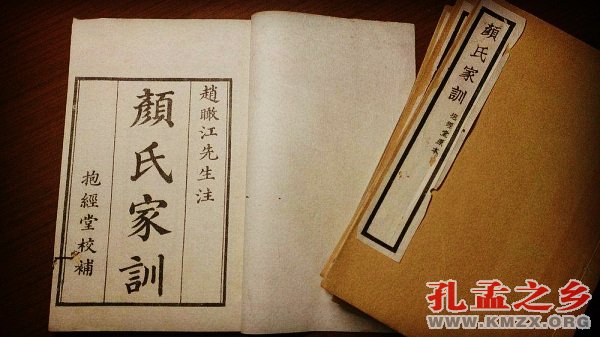 趙瞰江先生注
顏氏家訓
抱經堂校補
顏氏家訓
孔孟之乡
WWW.KMZX.ORG